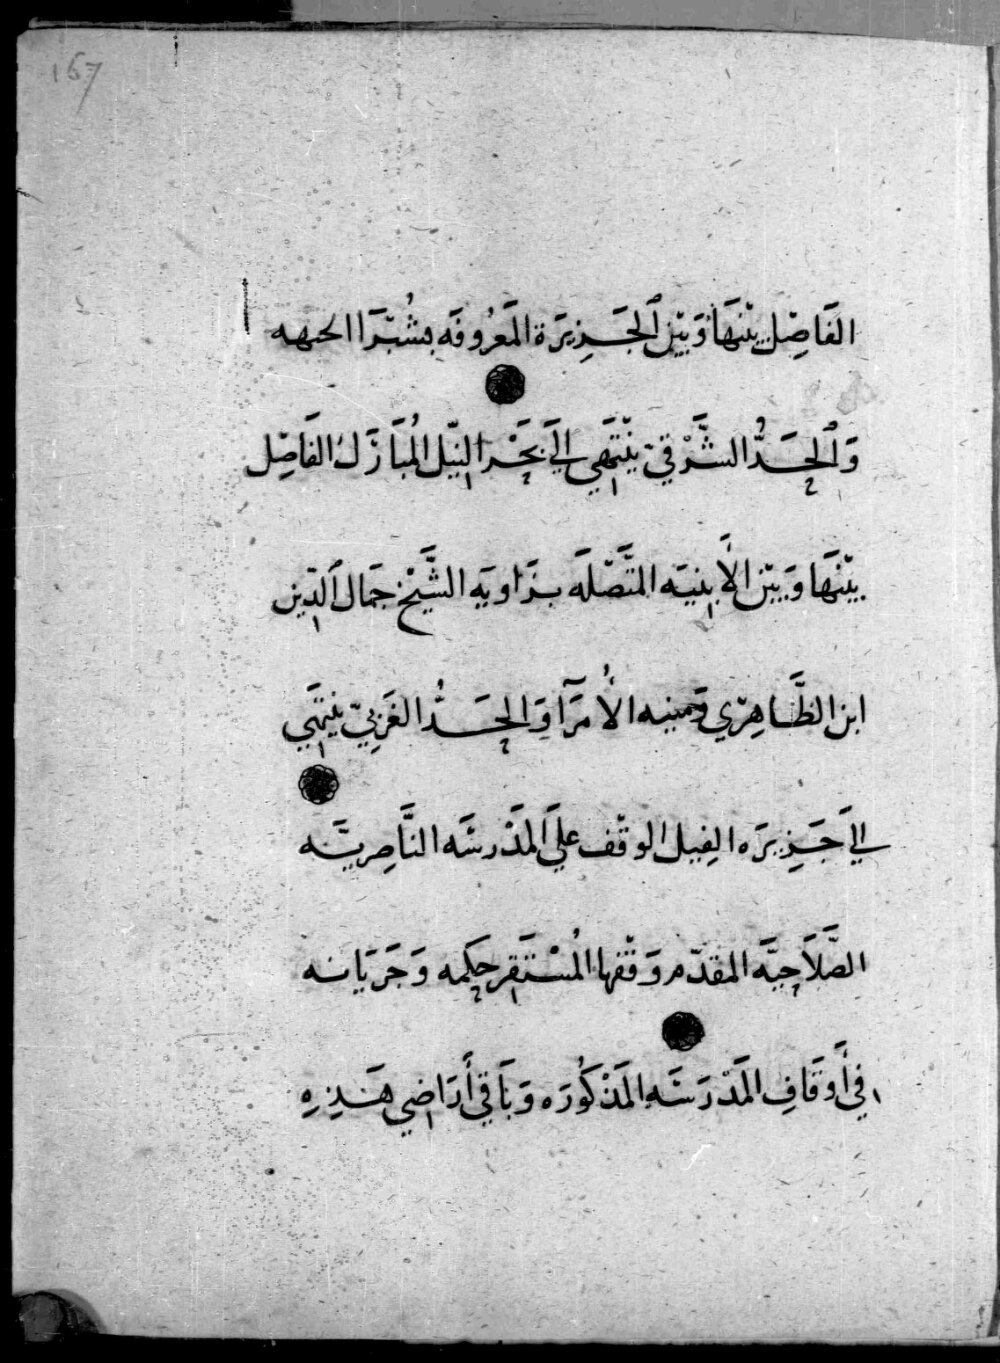 157
الفَاصِل بيْنهَا وَبيْن ٱلجَزِيرَة المَعرُوفَه بشُبْرَا الحهه
وَٱلحَدُّ الشَّرْقيّ ينْتَهَي إلَى بَحْر النيّل المُبَارَك الفَاصِل
بيْنهَا وَبيْن الأَبنيَه المتَّصْلَه بزَاويَه الشَّيْخ جمَال ٱلدّين
ابن الظَّاهِرّي وَمنيه الأُمرَآ وَالحَدُّ الغَربيّ ينتَهَي
إلَى جَزِيرَه الفِيل الوقْف علَى المَدْرسَه النَّاصِريَّه
الصَّلاَحِيَّه المقدّم وَقْفها المُسْتَقِر حكِمه وَجَرَيَانه
في أَوقَافِ المَدْرَسَه المَذْكُورَه وَبَاقي أَرَاضِي هَذِهِ